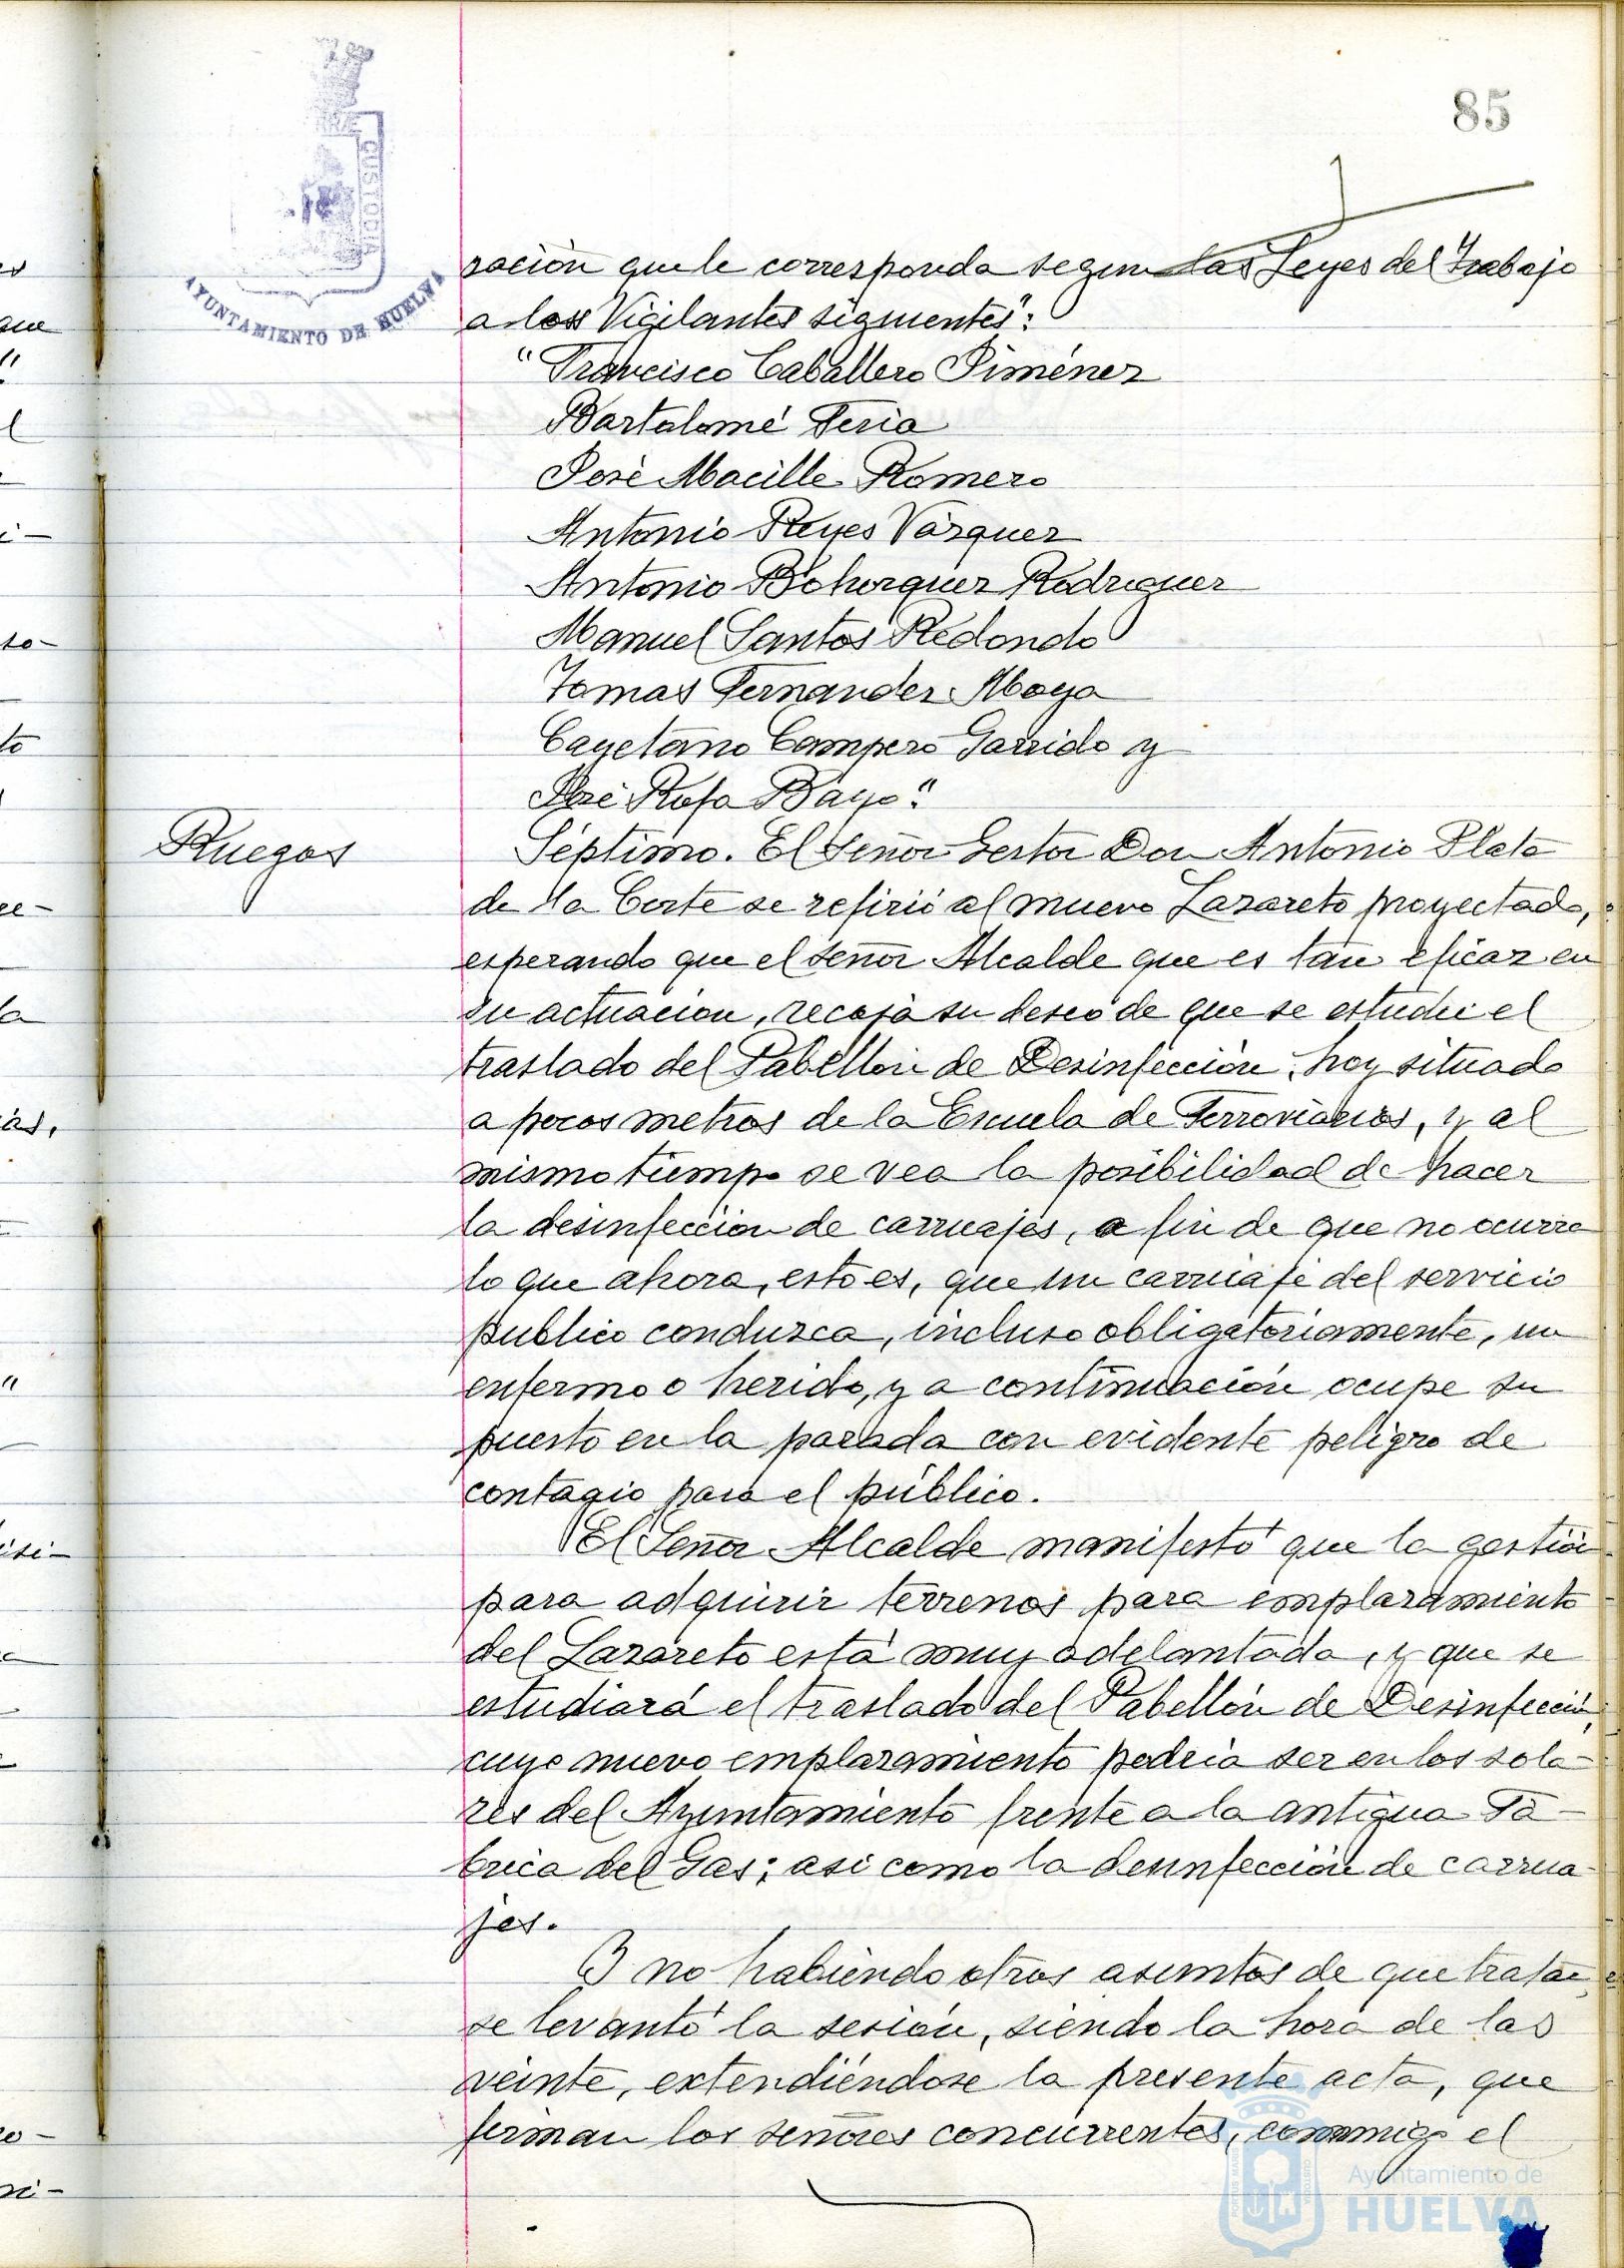 85
CUSTODIA
AYUNTAMIENTO DE HUELVA
ración que le corresponda segun las Leyes del Trabajo
a los Vigilantes siguientes":
"Francisco Caballero Jiménez
Bartolomé Feria
José Macille Romero
Antonio Reyes Vázquez
Antonio Bohorquez Rodriguez
Manuel Santos Redondo
Tomas Fernandez Moya
Cayetano Campero Garrido y
José Rofa Bayo".
Ruegos
Séptimo. El Señor Gestor Don Antonio Plata
de la Corte se refirió al nuevo Lazareto proyectado,
esperando que el señor Alcalde que es tan eficaz en
su actuación, recoja su deseo de que se estudie el
traslado del Pabellón de Desinfección, hoy situado
a pocos metros de la Escuela de Ferroviarios, y al
mismo tiempo se vea la posibilidad de hacer
la desinfección de carruajes, a fin de que no ocurra
lo que ahora, esto es, que un carruaje del servicio
publico conduzca, incluso obligatoriamente, un
enfermo o herido, y a continuación ocupe su
puesto en la parada con evidente peligro de
contagio para el público.
El Señor Alcalde manifestó que la gestión
para adquirir terrenos para emplazamiento
del Lazareto está muy adelantada, y que se
estudiará el traslado del Pabellón de Desinfección,
cuyo nuevo emplazamiento podria ser en los sola-
res del Ayuntamiento frente a la antigua Fá-
brica del Gas; asi como la desinfección de carrua-
jes.
Y no habiendo otros asuntos de que tratar,
se levantó la sesión, siendo la hora de las
veinte, extendiéndose la presente acta, que
firman los señores concurrentes, conmigo el
Ayuntamiento de
HUELVA